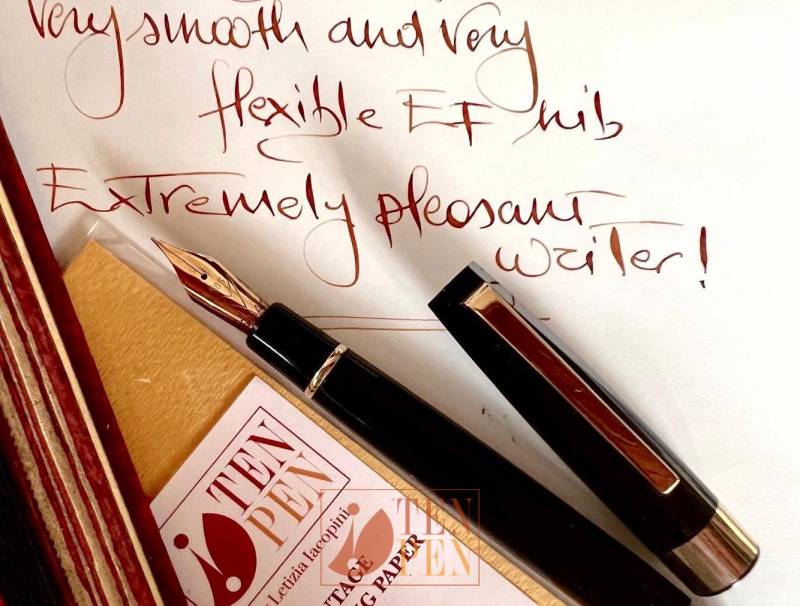 Very smooth and very
flexible EF nib
Extremely pleasant
writer!
TEN
PEN
Letizia Iacopini
TEN
PEN
G PAPER